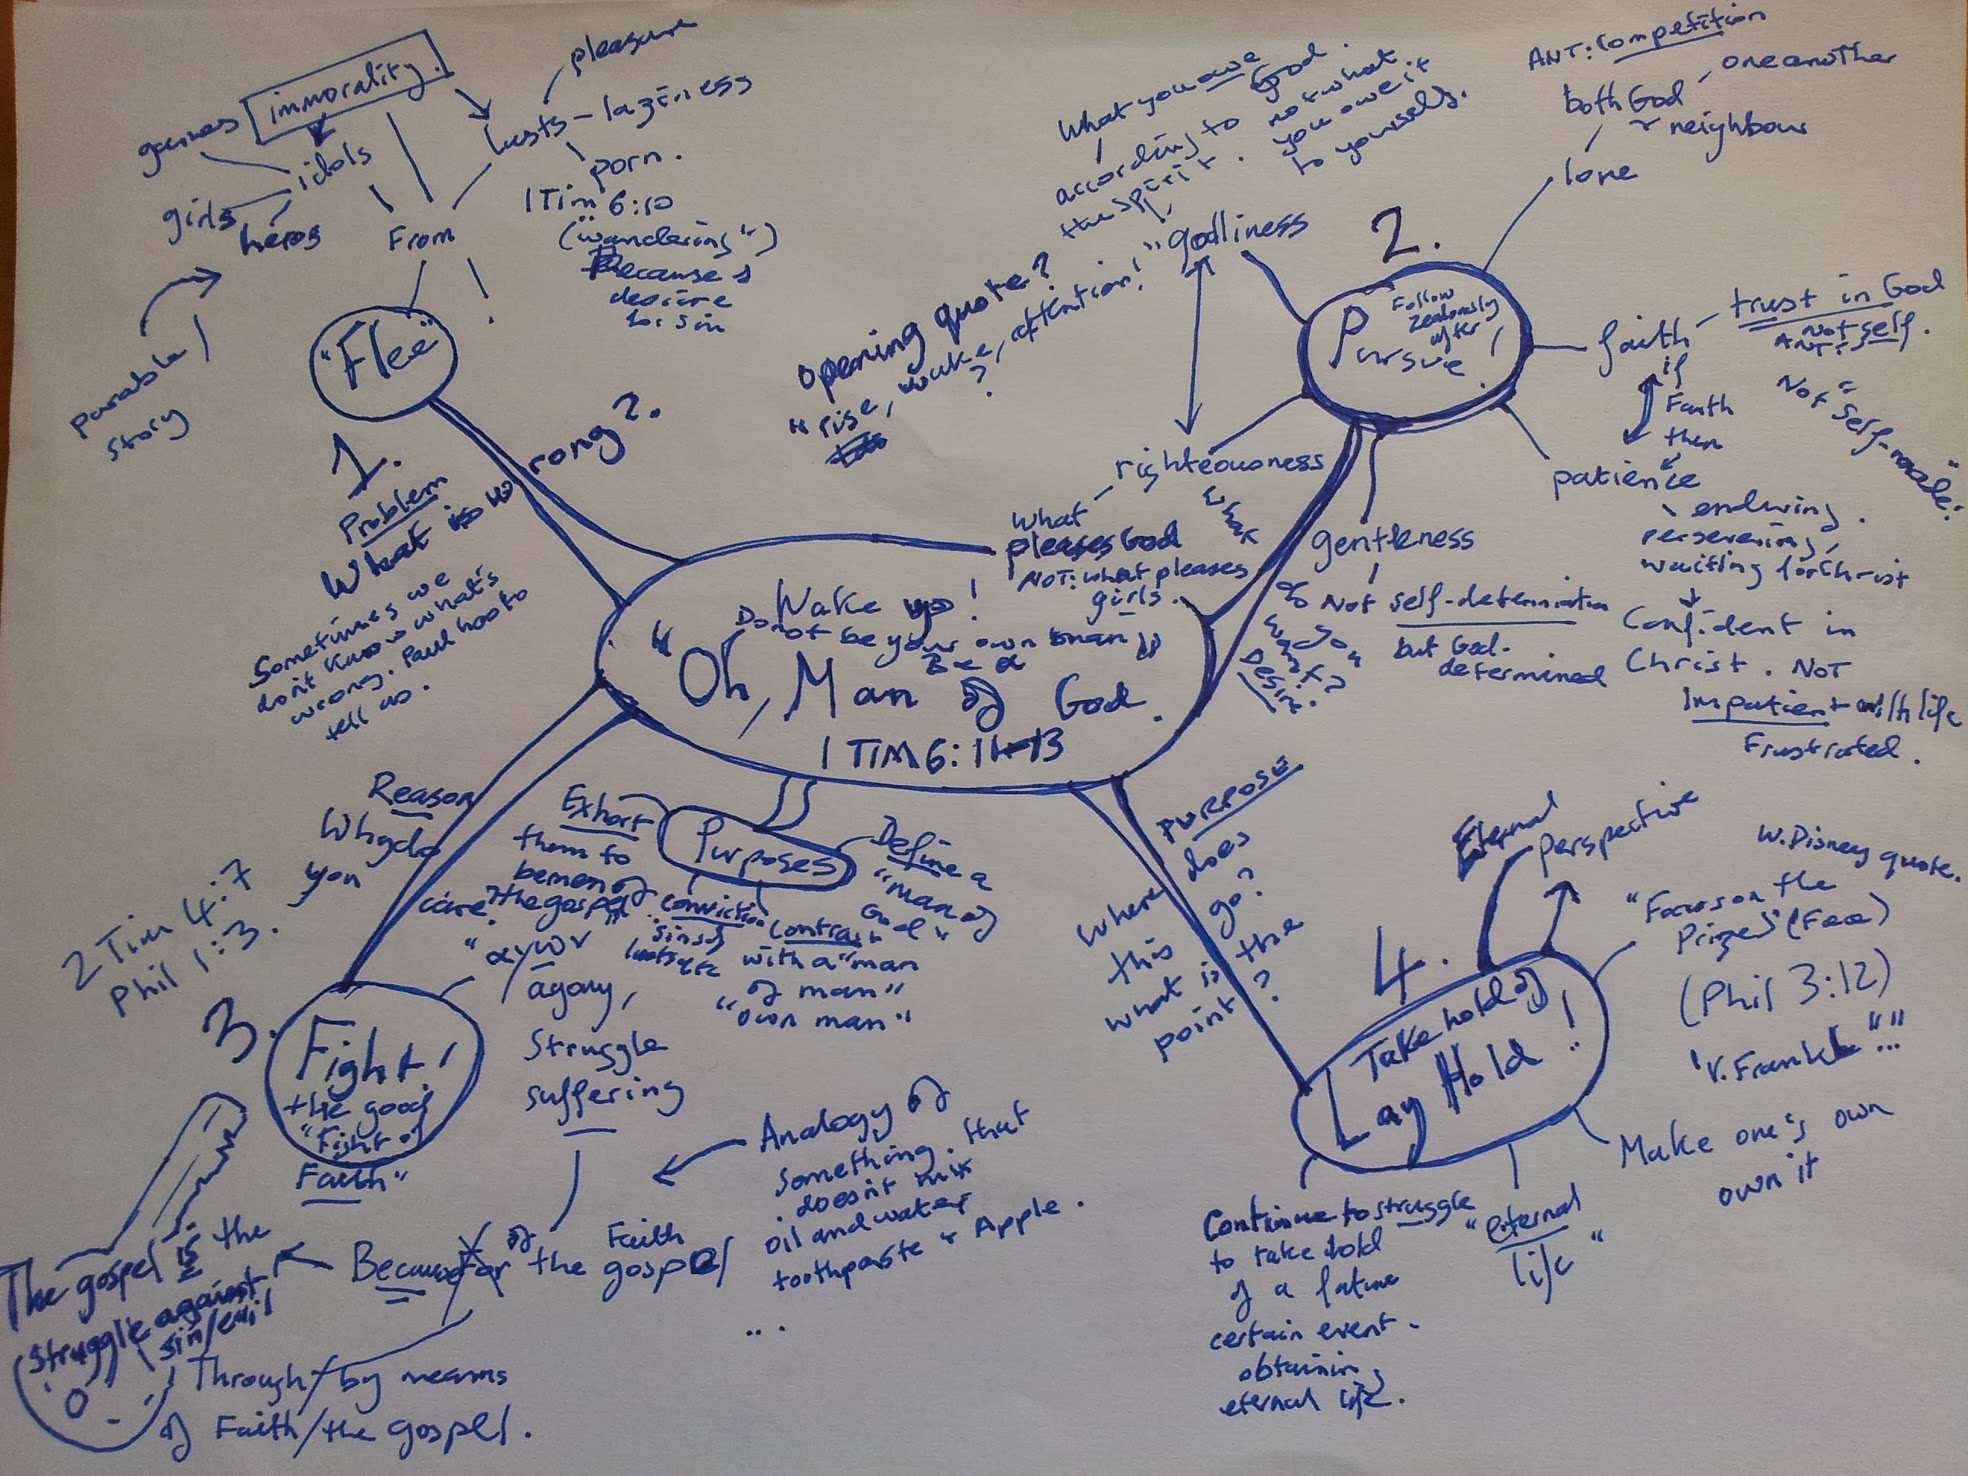 immorality.
games
idols
girls
heros
From
pleasure
lusts - laziness
porn.
1 Tim 6:10
("wandering")
Because
desire
for sin
"Flee"
!
parable/
story
1.
Problem
What is wrong?
Sometimes we
don't know what's
wrong. Paul has to
tell us.
Opening quote?
"rise, wake, attention!"
?
What you owe
God.
according to
the spirit.
not what
you owe it
to yourself.
godliness
2.
Pursue!
Follow
zealously
after
ANT: Competition
both God
one another
& neighbour
love
faith
trust in God
Not self.
ANT:
Not "self-made"
if
Faith
then
patience
enduring,
persevering,
waiting for Christ
Confident in
Christ. NOT
Impatient with life
Frustrated.
righteousness
What
pleases God
NOT: what pleases
girls.
What
do
you
want?
Desire
gentleness
Not self-determination
but God-
determined
Wake up!
Do not be your own man
Be a
"Oh, Man of God.
1 TIM 6:11-13
Purposes
Exhort
them to
be men of
the gospel
Conviction
sins of
Contrast
with a "man
of man"
"own man"
Define a
"man of
God"
Reason
Why do
you
care?
2 Tim 4:7
Phil 1:3.
3.
Fight!
the good
"Fight of
Faith"
"αγων
agony,
struggle
suffering
Analogy of
something that
doesn't mix
oil and water
toothpaste & Apple.
....
Because of the gospel
for
Faith
The gospel is the
struggle against
sin/evil
Through/by means
of Faith/the gospel.
PURPOSE
Where does
this go?
what is the
point?
4.
Take hold of
Lay Hold!
Eternal
Perspective
W. Disney quote.
"Focus on the
Prize" (Fee)
(Phil 3:12)
V. Frankl "..."
Make one's own
own it
"eternal
life"
Continue to struggle
to take hold
of a future
certain event.
obtaining
eternal life.